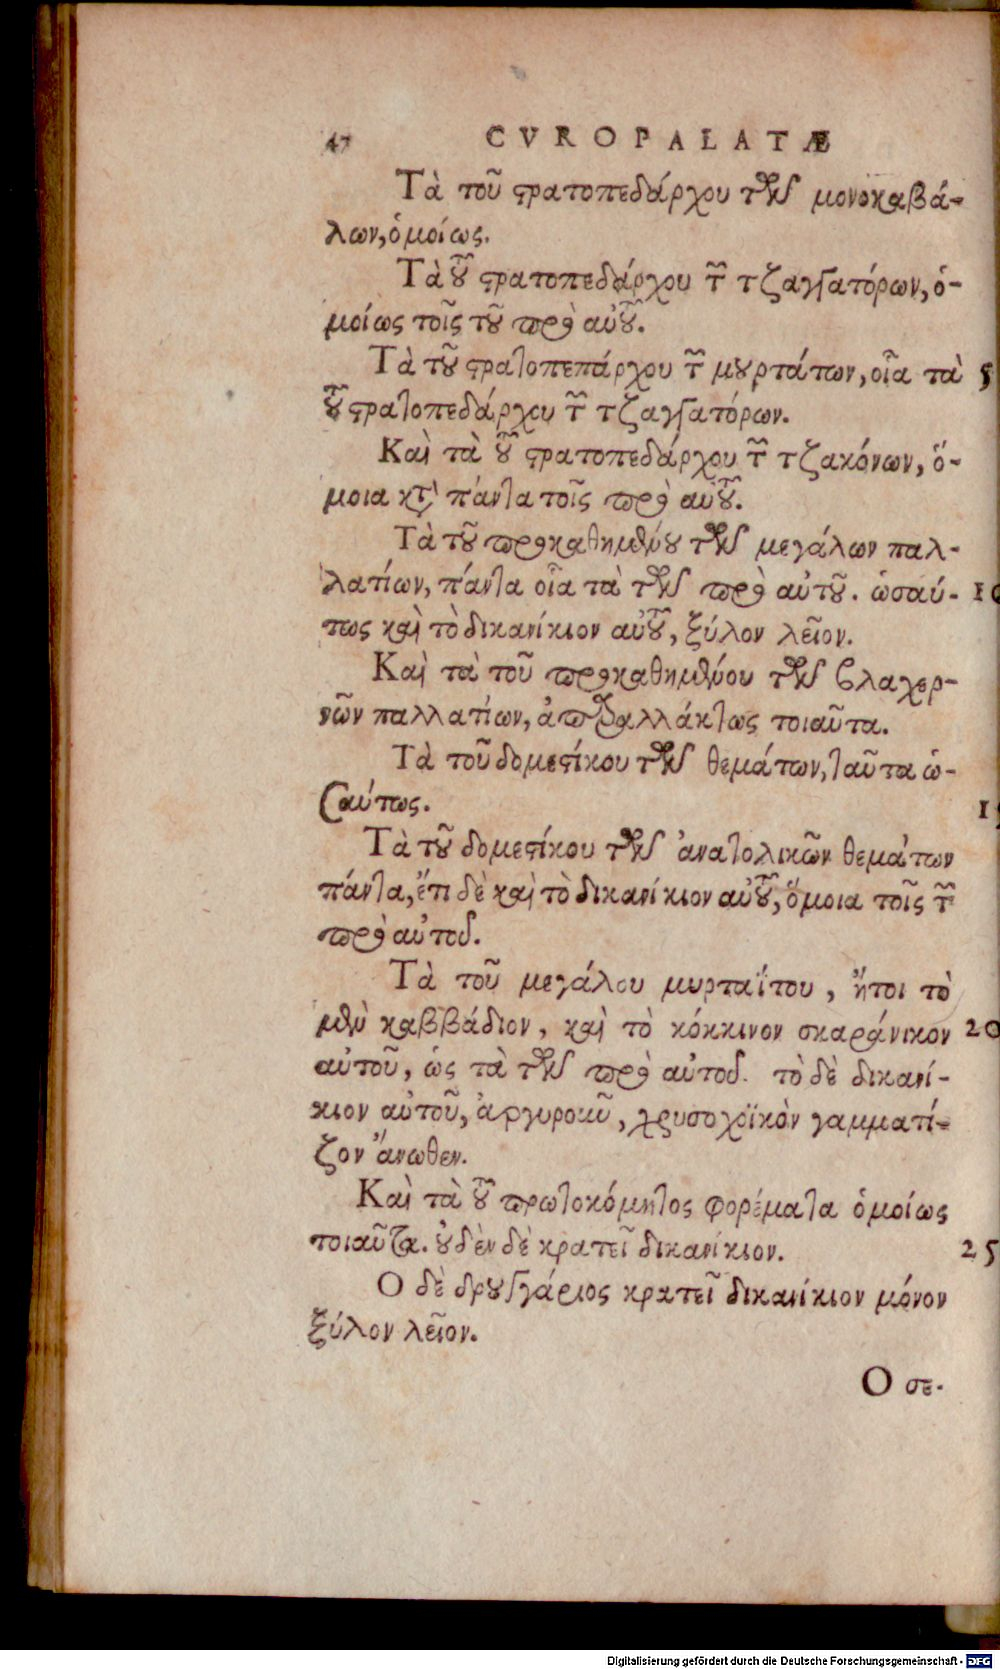 47 CVROPALATÆ
Τὰ τοῦ στρατοπεδάρχου τῶν μονοκαβά-
λων, ὁμοίως.
Τὰ τοῦ στρατοπεδάρχου τῶν τζαγγρατόρων, ὁ-
μοίως τοῖς τοῦ πρὸ αὐτοῦ.
Τὰ τοῦ στρατοπεπάρχου τῶν μουρτάτων, οἷα τὰ 5
τοῦ στρατοπεδάρχου τῶν τζαγγρατόρων.
Καὶ τὰ τοῦ στρατοπεδάρχου τῶν τζακόνων, ὅ-
μοια κατὰ πάντα τοῖς πρὸ αὐτοῦ.
Τὰ τοῦ προκαθημένου τῶν μεγάλων παλ-
λατίων, πάντα οἷα τὰ τῶν πρὸ αὐτοῦ. ὡσαύ- 10
τως καὶ τὸ δικανίκιον αὐτοῦ, ξύλον λεῖον.
Καὶ τὰ τοῦ προκαθημένου τῶν βλαχερ-
νῶν παλλατίων, ἀπαραλλάκτως τοιαῦτα.
Τὰ τοῦ δομεστίκου τῶν θεμάτων, ταῦτα ὡ-
σαύτως. 15
Τὰ τοῦ δομεστίκου τῶν ἀνατολικῶν θεμάτων
πάντα, ἔτι δὲ καὶ τὸ δικανίκιον αὐτοῦ, ὅμοια τοῖς τῶν
πρὸ αὐτοῦ.
Τὰ τοῦ μεγάλου μυρταΐτου, ἤτοι τὸ
μὲν καββάδιον, καὶ τὸ κόκκινον σκαράνικον 20
αὐτοῦ, ὡς τὰ τῶν πρὸ αὐτοῦ. τὸ δὲ δικανί-
κιον αὐτοῦ, ἀργυροῦν, χρυσοχοϊκὸν γαμματί-
ζον ἄνωθεν.
Καὶ τὰ τοῦ πρωτοκόμητος φορέματα ὁμοίως
τοιαῦτα. οὐδὲν δὲ κρατεῖ δικανίκιον. 25
Ο δὲ δρουγγάριος κρατεῖ δικανίκιον μόνον
ξύλον λεῖον.
Ο σε-
Digitalisierung gefördert durch die Deutsche Forschungsgemeinschaft - DFG